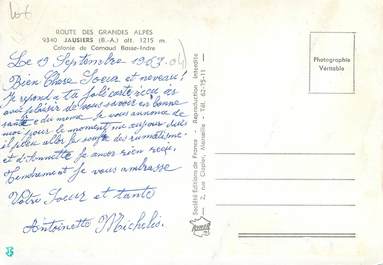 ROUTE DES GRANDES ALPES
9340 JAUSIERS (B.-A.) alt. 1215 m.
Colonie de Cornaud Basse-Indre
Le 9 Septembre 1967
Bien Chère Soeur et neveau!
Je répond a ta joli carte reçu ès
avec plaisir de vous savoir en bonne
santé du meme Je vous annonce de
moi pour le moment
il pleu aller Je souffre des rumatisme
et d'Annette Je amor rien reçu,
Tendrement Je vous embrasse
Votre Soeur et tante
Antoinette Michelis.
Société Editions de France - Reproduction interdite
2, rue Clapier, Marseille - Tél. 62-15-11
Photographie
Véritable